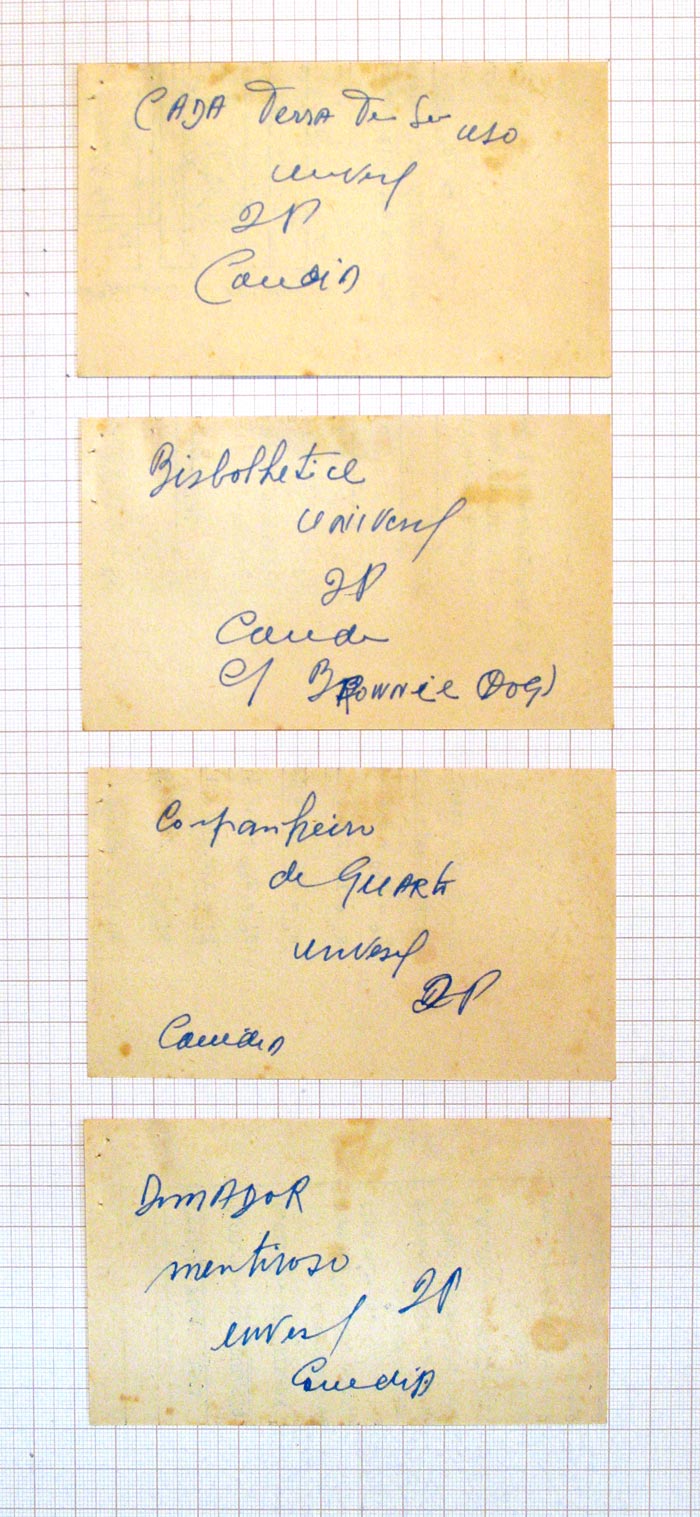 CADA Terra Tem Seu uso
Universal
2P
Comedia
Bisbolhetice
Universal
2P
Comedia
C/ BROWNIE (DOG)
Companheiro
de QUARTo
Universal
2P
Comedia
DomADOR
mentiroso
2P
Universal
ComediA